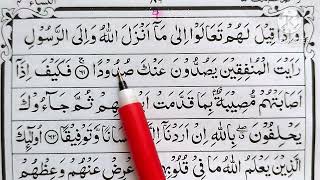 وَإِذَا قِيْلَ لَهُمْ تَعَالَوْا اِلٰى مَآ اَنْزَلَ اللّٰهُ وَاِلَى الرَّسُوْلِ
رَاَيْتَ الْمُنٰفِقِيْنَ يَصُدُّوْنَ عَنْكَ صُدُوْدًا ۚ ٦١ فَكَيْفَ اِذَآ
اَصَابَتْهُمْ مُّصِيْبَةٌۢ بِمَا قَدَّمَتْ ثُمَّ جَآءُوْكَ
يَحْلِفُوْنَ ۖ بِاللّٰهِ اِنْ اَرَدْنَآ وَّتَوْفِيْقًا ٦٢ اُولٰٓئِكَ
الَّذِيْنَ يَعْلَمُ اللّٰهُ مَا فِيْ عَنْهُمْ وَعِظْهُمْ